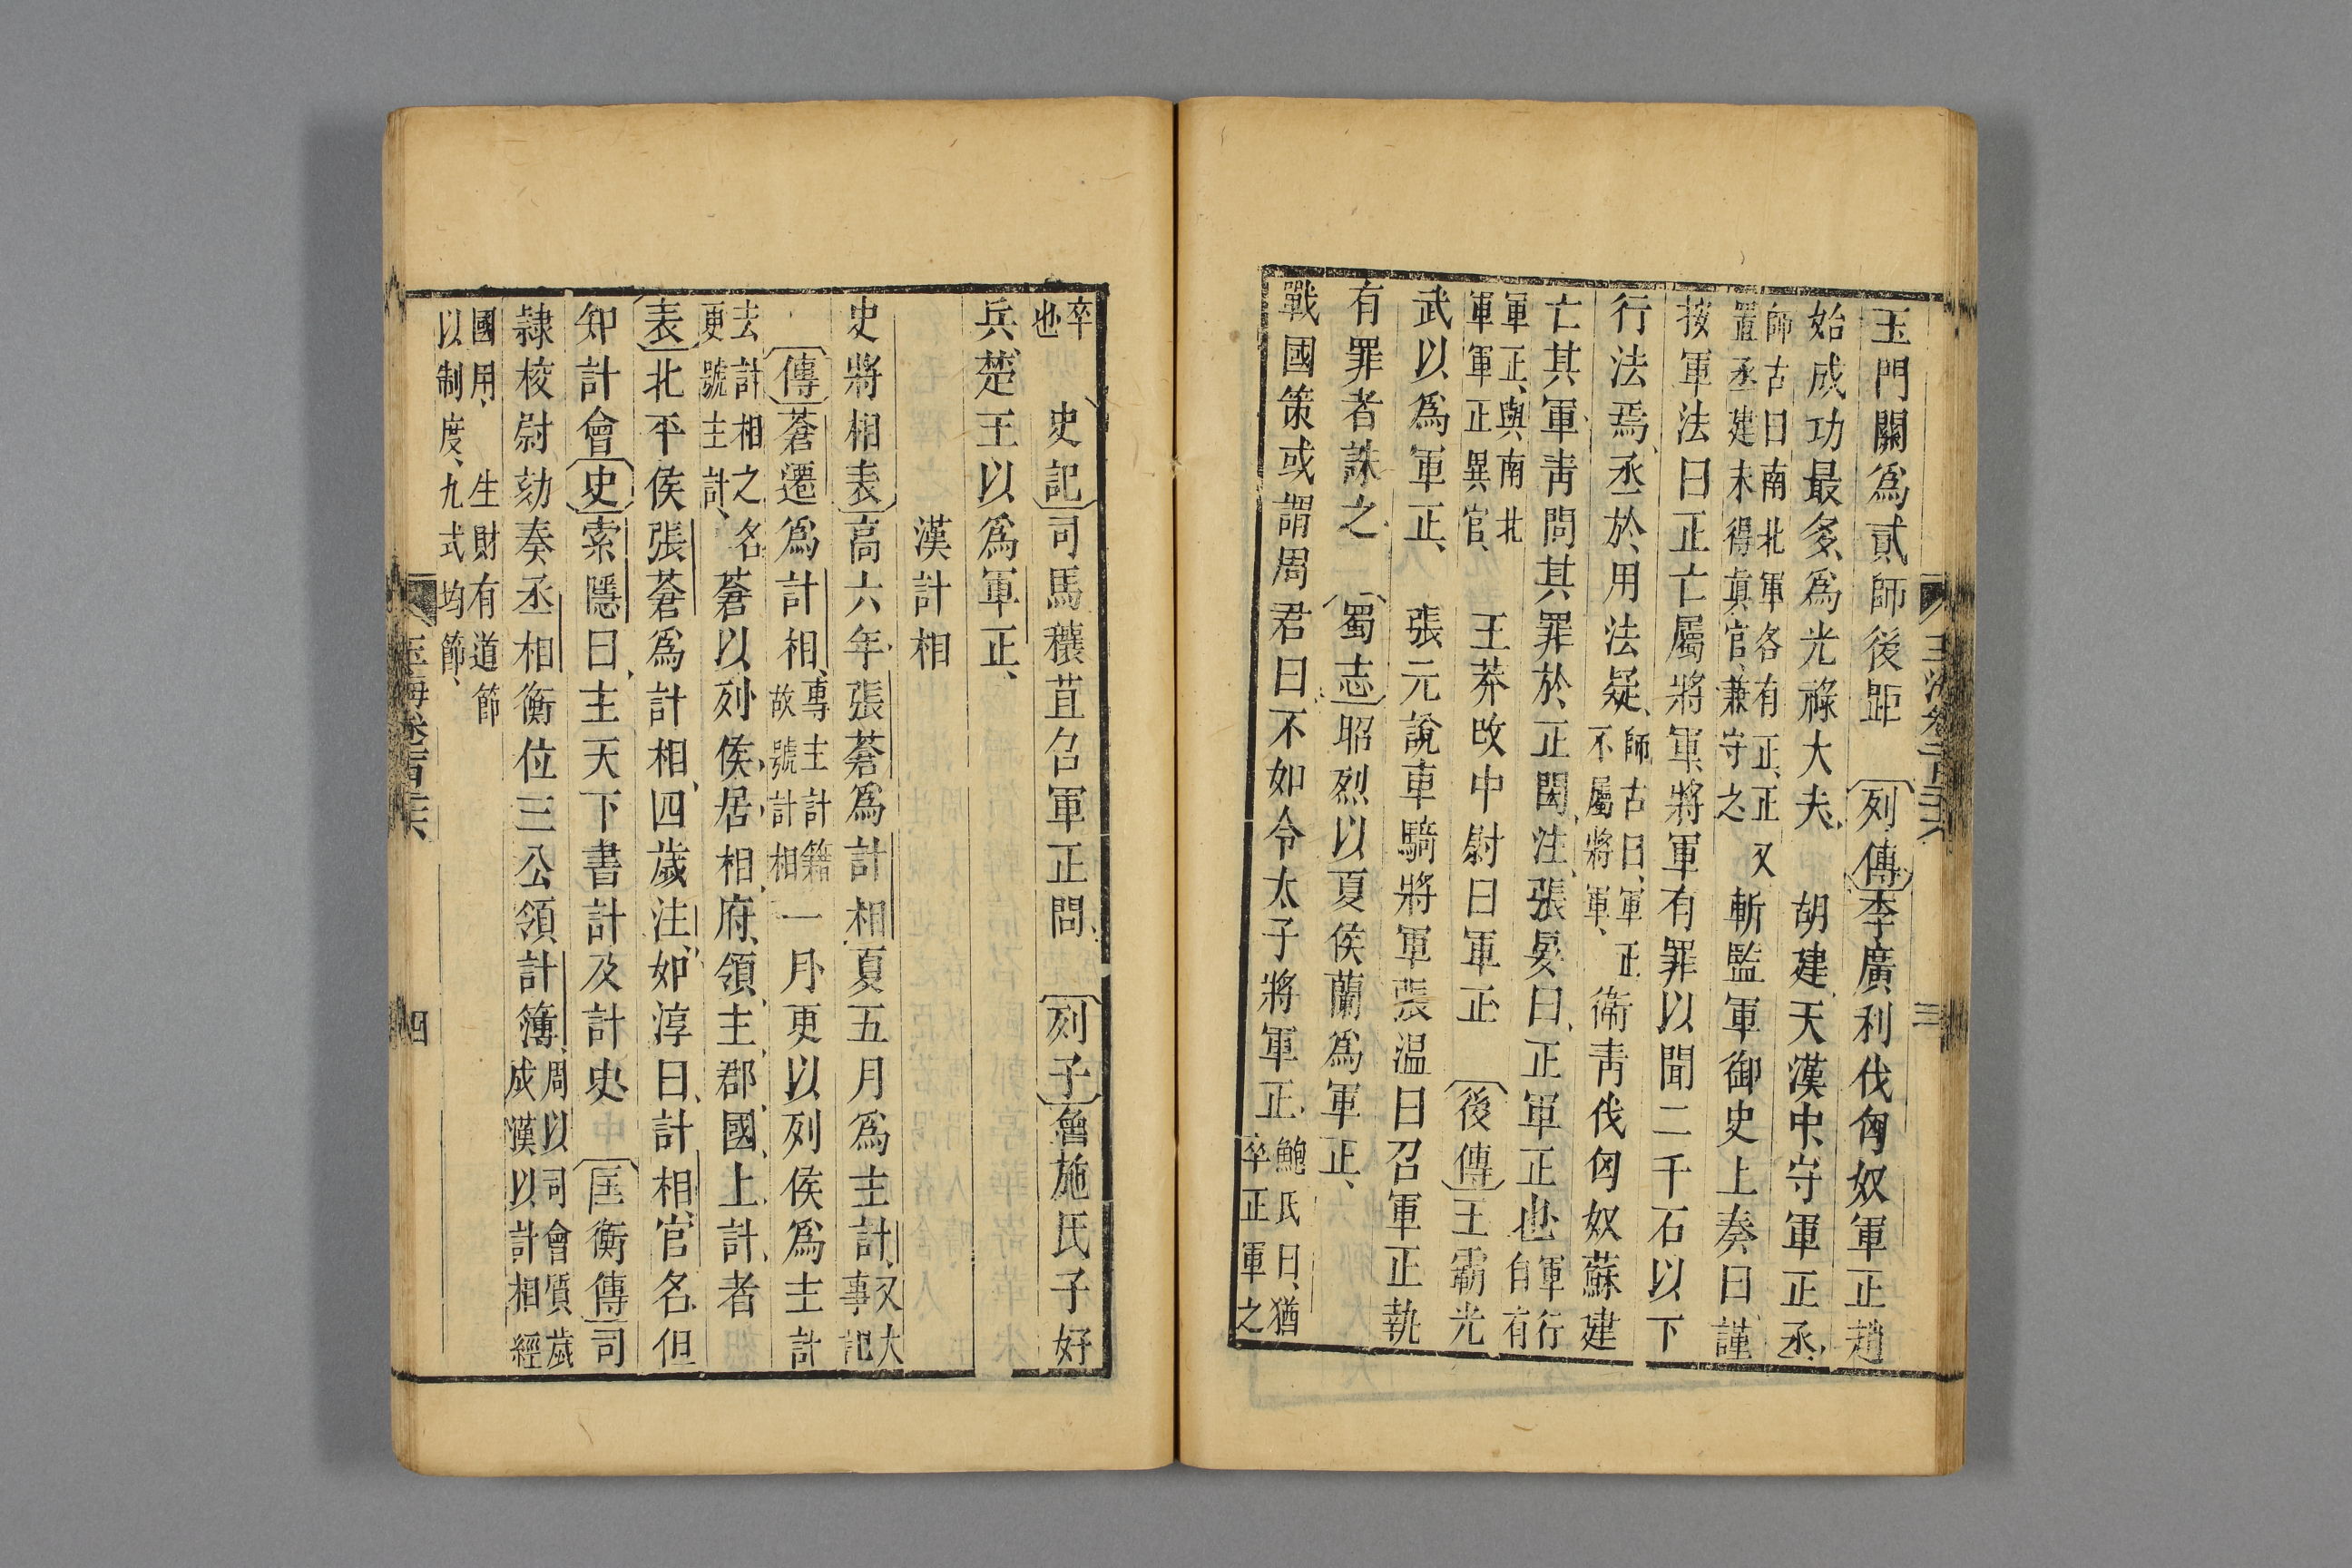 玉門關爲貳師後距　列傳李廣利伐匈奴軍正趙
始成功最多爲光祿大夫　胡建天漢中守軍正丞
師古曰南北軍各有正正又
置丞建未得真官兼守之
斬監軍御史上奏曰謹
按軍法曰正亡屬將軍將軍有罪以聞二千石以下
行法焉丞於用法疑
師古曰軍正
不屬將軍
衛青伐匈奴蘇建
亡其軍青問其罪於正閎注張晏曰正軍正也
軍行
自有
軍正與南北
軍軍正異官
王莽改中尉曰軍正　後傳王霸光
武以爲軍正　張元說車騎將軍張温曰召軍正執
有罪者誅之　蜀志昭烈以夏侯蘭爲軍正
戰國策或謂周君曰不如令太子將軍正
鮑氏曰猶
卒正軍之
玉海卷
三
卒
也
史記司馬穰苴召軍正問　列子魯施氏子好
兵楚王以爲軍正
漢計相
史將相表高六年張蒼爲計相夏五月爲主計
又大
事記
傳蒼遷爲計相
專主計籍
故號計相
一月更以列侯爲主計
去計相之名
更號主計
蒼以列侯居相府領主郡國上計者
表北平侯張蒼爲計相四歲注如淳曰計相官名但
知計會史索隱曰主天下書計及計史　匡衡傳司
隸校尉劾奏丞相衡位三公領計簿
周以司會質歲
成漢以計相經
國用　生財有道節
以制度九式均節
玉海卷
四